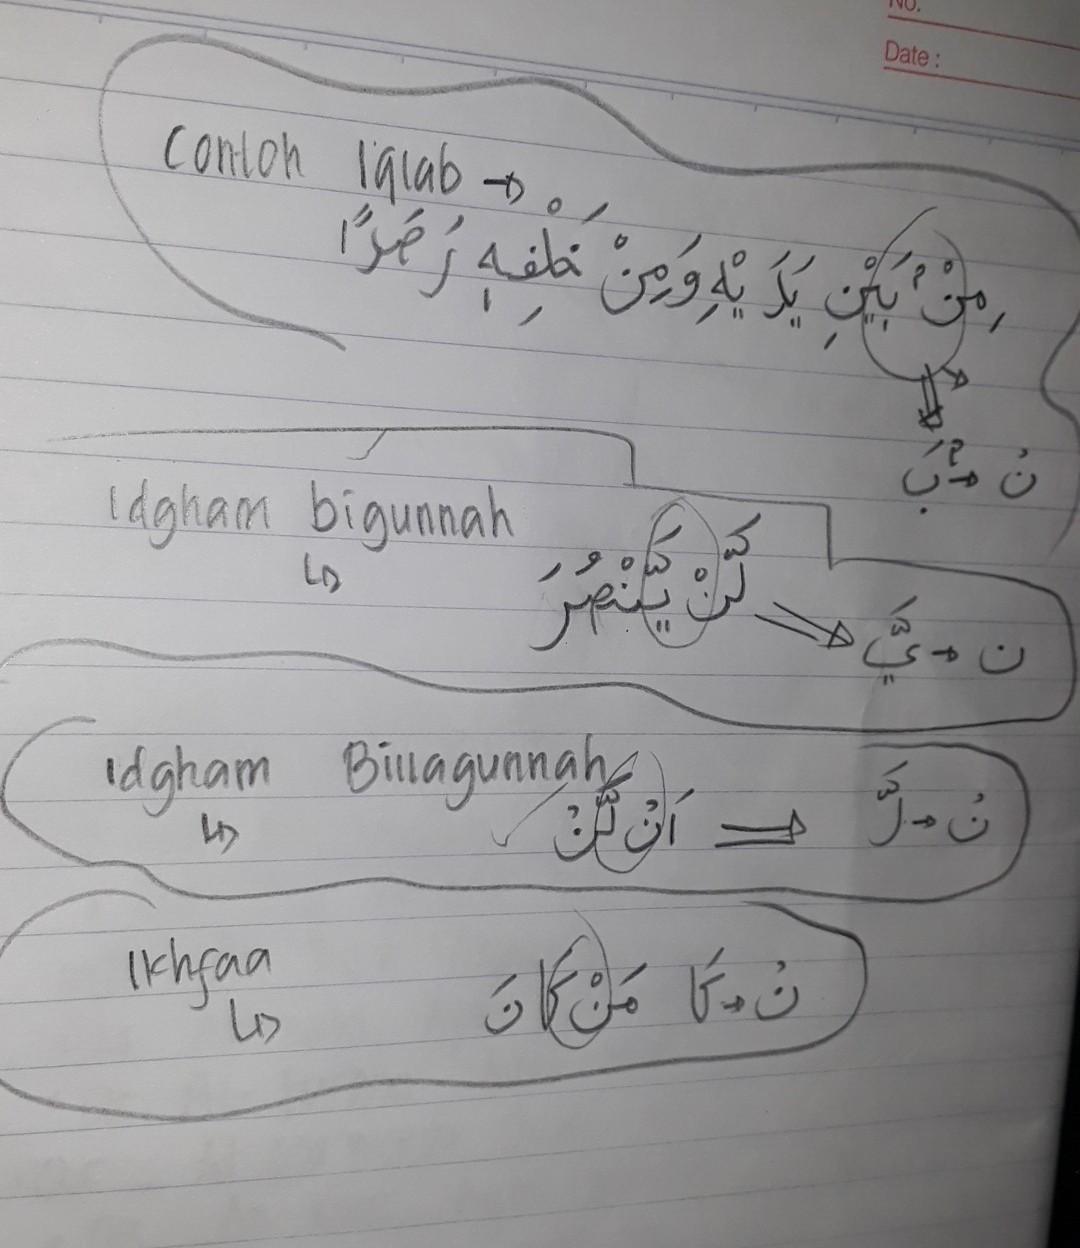 No.
Date :
Contoh Iqlab →
مِنْۢ بَيْنِ يَدَيْهِ وَمِنْ خَلْفِهٖ رَصَدًا
نْ → بَ
Idgham bigunnah
لَّنْ يَّنْصُرَ
ن → يَّ
Idgham Billagunnah
اَنْ لَّنْ ⇒ نْ → لَّ
Ikhfaa
نْ → كَا مَنْ كَانَ